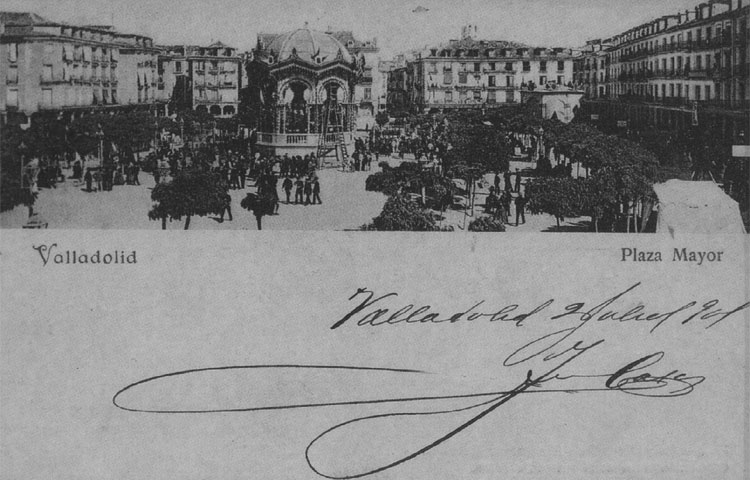 Valladolid
Plaza Mayor
Valladolid 2 Julio 901